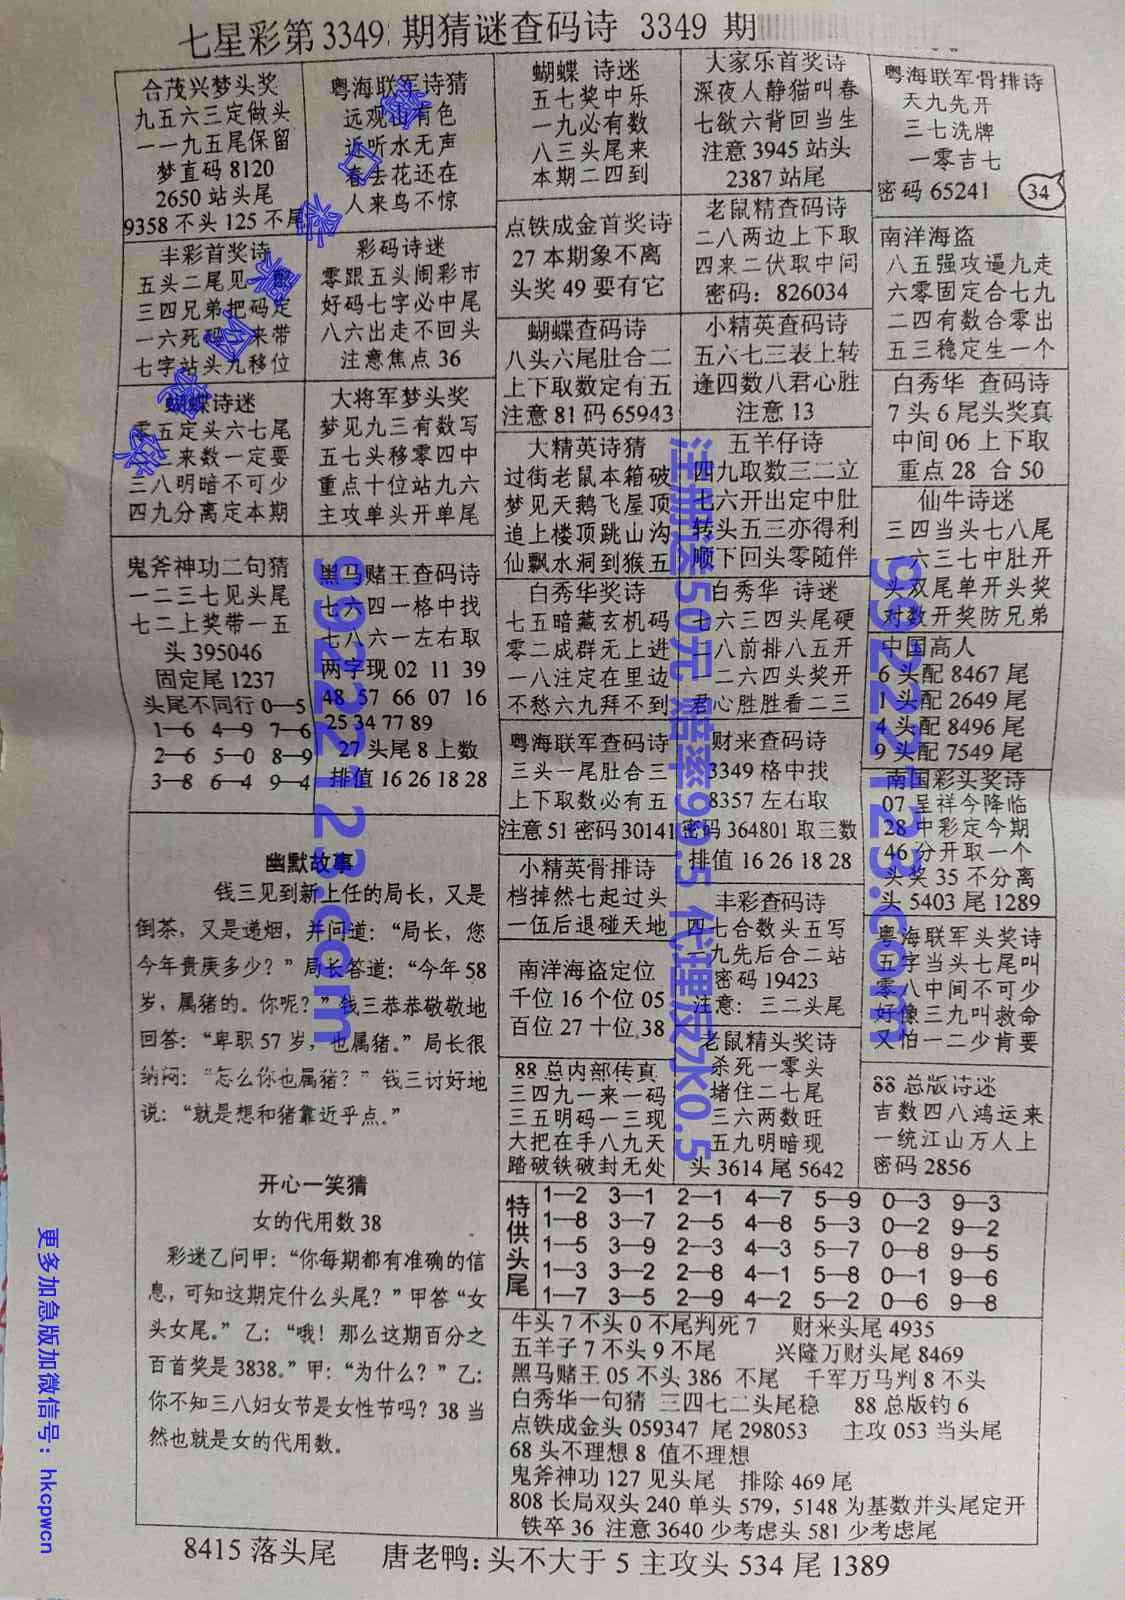 七星彩第3349 期猜谜查码诗 3349 期
合茂兴梦头奖
九五六三定做头
一一九五尾保留
梦直码 8120
2650 站头尾
9358 不头 125 不尾
丰彩首奖诗
五头二尾见
三四兄弟把码定
一六死码 来带
七字站头九移位
蝴蝶诗迷
零五定头六七尾
来数一定要
三八明暗不可少
四九分离定本期
鬼斧神功二句猜
一二三七见头尾
七二上奖带一五
头 395046
固定尾 1237
头尾不同行 0—5
1—6 4—9 7—6
2—6 5—0 8—9
3—8 6—4 9—4
粤海联军诗猜
远观山有色
近听水无声
春去花还在
人来鸟不惊
彩码诗迷
零跟五头闹彩市
好码七字必中尾
八六出走不回头
注意焦点 36
大将军梦头奖
梦见九三有数写
五七头移零四中
重点十位站九六
主攻单头开单尾
黑马赌王查码诗
七六四一格中找
七八六一左右取
两字现 02 11 39
48 57 66 07 16
25 34 77 89
27 头尾 8 上数
排值 16 26 18 28
蝴蝶 诗迷
五七奖中乐
一九必有数
八三头尾来
本期二四到
点铁成金首奖诗
27 本期象不离
头奖 49 要有它
蝴蝶查码诗
八头六尾肚合二
上下取数定有五
注意 81 码 65943
大精英诗猜
过街老鼠本箱破
梦见天鹅飞屋顶
追上楼顶跳山沟
仙飘水洞到猴五
白秀华奖诗
七五暗藏玄机码
零二成群无上进
一八注定在里边
不愁六九拜不到
粤海联军查码诗
三头一尾肚合三
上下取数必有五
注意 51 密码 30141
小精英骨排诗
档掉然七起过头
一伍后退碰天地
南洋海盗定位
千位 16 个位 05
百位 27 十位 38
88 总内部传真
三四九一来一码
三五明码一三现
大把在手八九天
踏破铁破封无处
大家乐首奖诗
深夜人静猫叫春
七欲六背回当生
注意 3945 站头
2387 站尾
老鼠精查码诗
二八两边上下取
四来二伏取中间
密码：826034
小精英查码诗
五六七三表上转
逢四数八君心胜
注意 13
五羊仔诗
四九取数三二立
七六开出定中肚
转头五三亦得利
顺下回头零随伴
白秀华 诗迷
七六三四头尾硬
二八前排八五开
一二六四头奖开
君心胜胜看二三
财来查码诗
3349 格中找
8357 左右取
密码 364801 取三数
排值 16 26 18 28
丰彩查码诗
四七合数头五写
一九先后合二站
密码 19423
注意：三二头尾
老鼠精头奖诗
杀死一零头
堵住二七尾
三六两数旺
五九明暗现
头 3614 尾 5642
粤海联军骨排诗
天九先开
三七洗牌
一零吉七
密码 65241
34
南洋海盗
八五强攻逼九走
六零固定合七九
二四有数合零出
五三稳定生一个
白秀华 查码诗
7 头 6 尾头奖真
中间 06 上下取
重点 28 合 50
仙牛诗迷
三四当头七八尾
一六三七中肚开
头双尾单开头奖
对数开奖防兄弟
中国高人
6 头配 8467 尾
1 头配 2649 尾
4 头配 8496 尾
9 头配 7549 尾
南国彩头奖诗
07 呈祥今降临
28 中彩定今期
46 分开取一个
头奖 35 不分离
头 5403 尾 1289
粤海联军头奖诗
五字当头七尾叫
零八中间不可少
好像三九叫救命
又怕一二少肯要
88 总版诗迷
吉数四八鸿运来
一统江山万人上
密码 2856
幽默故事
钱三见到新上任的局长，又是
倒茶，又是递烟，并问道：“局长，您
今年贵庚多少？”局长答道：“今年 58
岁，属猪的。你呢？”钱三恭恭敬敬地
回答：“卑职 57 岁，也属猪。”局长很
纳闷：“怎么你也属猪？”钱三讨好地
说：“就是想和猪靠近乎点。”
开心一笑猜
女的代用数 38
彩迷乙问甲：“你每期都有准确的信
息，可知这期定什么头尾？”甲答“女
头女尾。”乙：“哦！那么这期百分之
百首奖是 3838。”甲：“为什么？”乙：
你不知三八妇女节是女性节吗？38 当
然也就是女的代用数。
特供头尾
1—2 3—1 2—1 4—7 5—9 0—3 9—3
1—8 3—7 2—5 4—8 5—3 0—2 9—2
1—5 3—9 2—3 4—3 5—7 0—8 9—5
1—3 3—2 2—8 4—1 5—8 0—1 9—6
1—7 3—5 2—9 4—2 5—2 0—6 9—8
牛头 7 不头 0 不尾判死 7 财来头尾 4935
五羊子 7 不头 9 不尾 兴隆万财头尾 8469
黑马赌王 05 不头 386 不尾 千军万马判 8 不头
白秀华一句猜 三四七二头尾稳 88 总版钓 6
点铁成金头 059347 尾 298053 主攻 053 当头尾
68 头不理想 8 值不理想
鬼斧神功 127 见头尾 排除 469 尾
808 长局双头 240 单头 579，5148 为基数并头尾定开
铁卒 36 注意 3640 少考虑头 581 少考虑尾
8415 落头尾 唐老鸭：头不大于 5 主攻头 534 尾 1389
9922123.com
注册送50元 赔率99.5 代理反水0.5
9922123.com
更多加急版加微信号：hkcpwcn